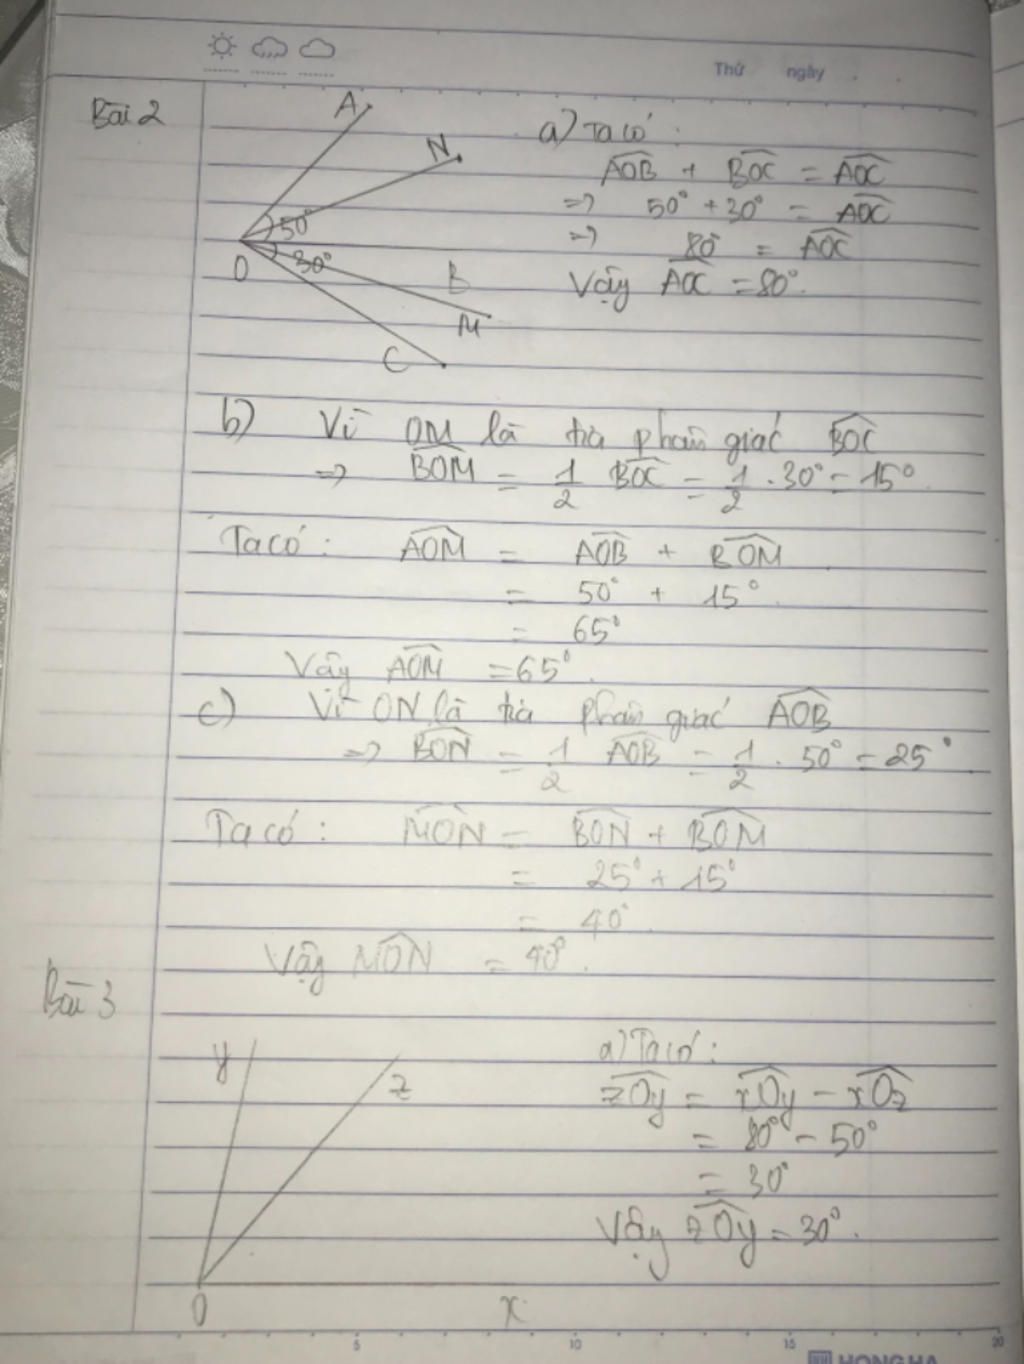 Thứ ngày
Bài 2
A
N
50°
30°
O
B
M
C
a) Ta có:
AOB + BOC = AOC
=> 50° + 30° = AOC
=> 80° = AOC
Vậy AOC = 80°.
b) Vì OM là tia phân giác BOC
=> BOM = 1/2 BOC = 1/2 . 30° = 15°.
Ta có: AOM = AOB + BOM
= 50° + 15°
= 65°
Vậy AOM = 65°.
c) Vì ON là tia phân giác AOB
=> BON = 1/2 AOB = 1/2 . 50° = 25°
Ta có: MON = BON + BOM
= 25° + 15°
= 40°
Vậy MON = 40°.
Bài 3
y
z
O
x
a) Ta có:
zOy = xOy - xOz
= 80° - 50°
= 30°
Vậy zOy = 30°.
5 10 15 20
HONG HA